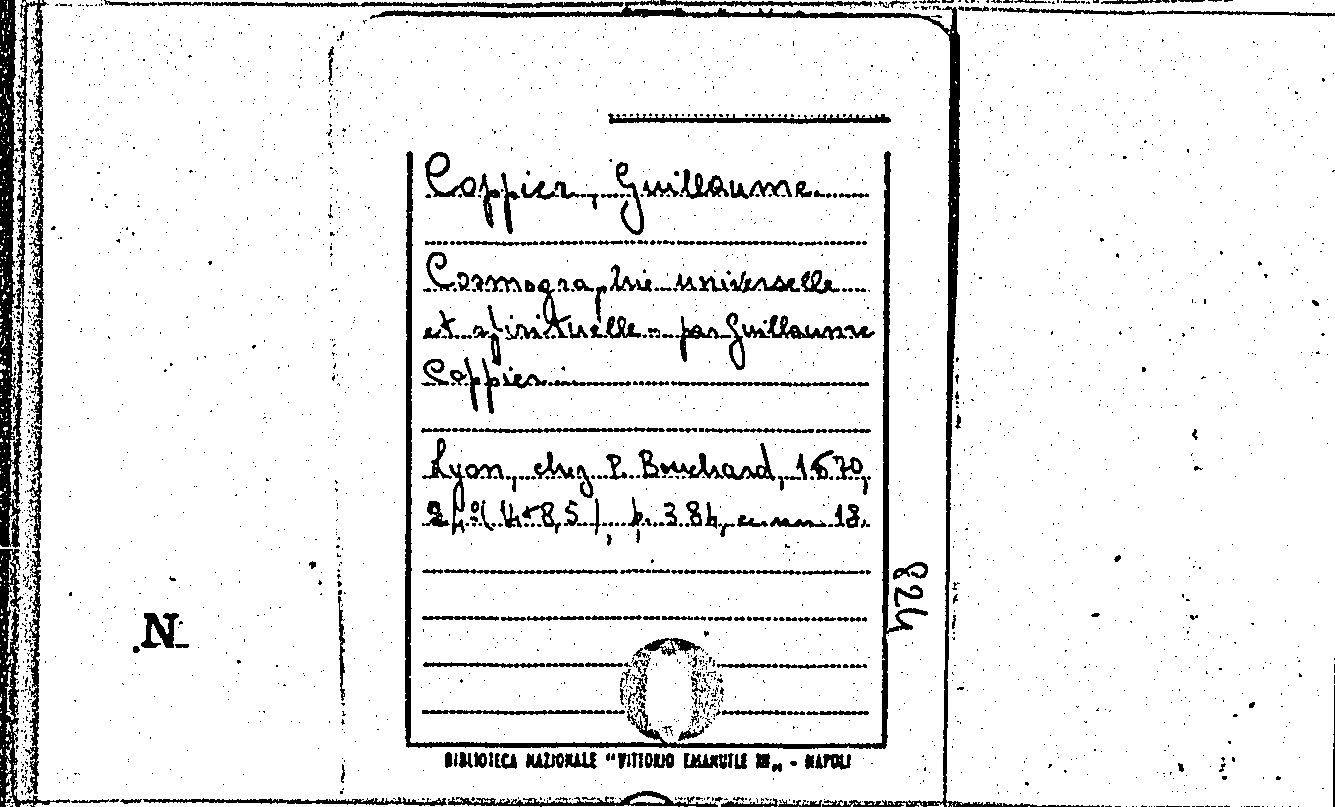 Coppier, Guillaume
Cosmographie universelle
et spirituelle - par Guillaume
Coppier.
Lyon, chez P. Bouchard, 1670,
p. 384, c. nn 18.
824
N
BIBLIOTECA NAZIONALE "VITTORIO EMANUELE III" - NAPOLI